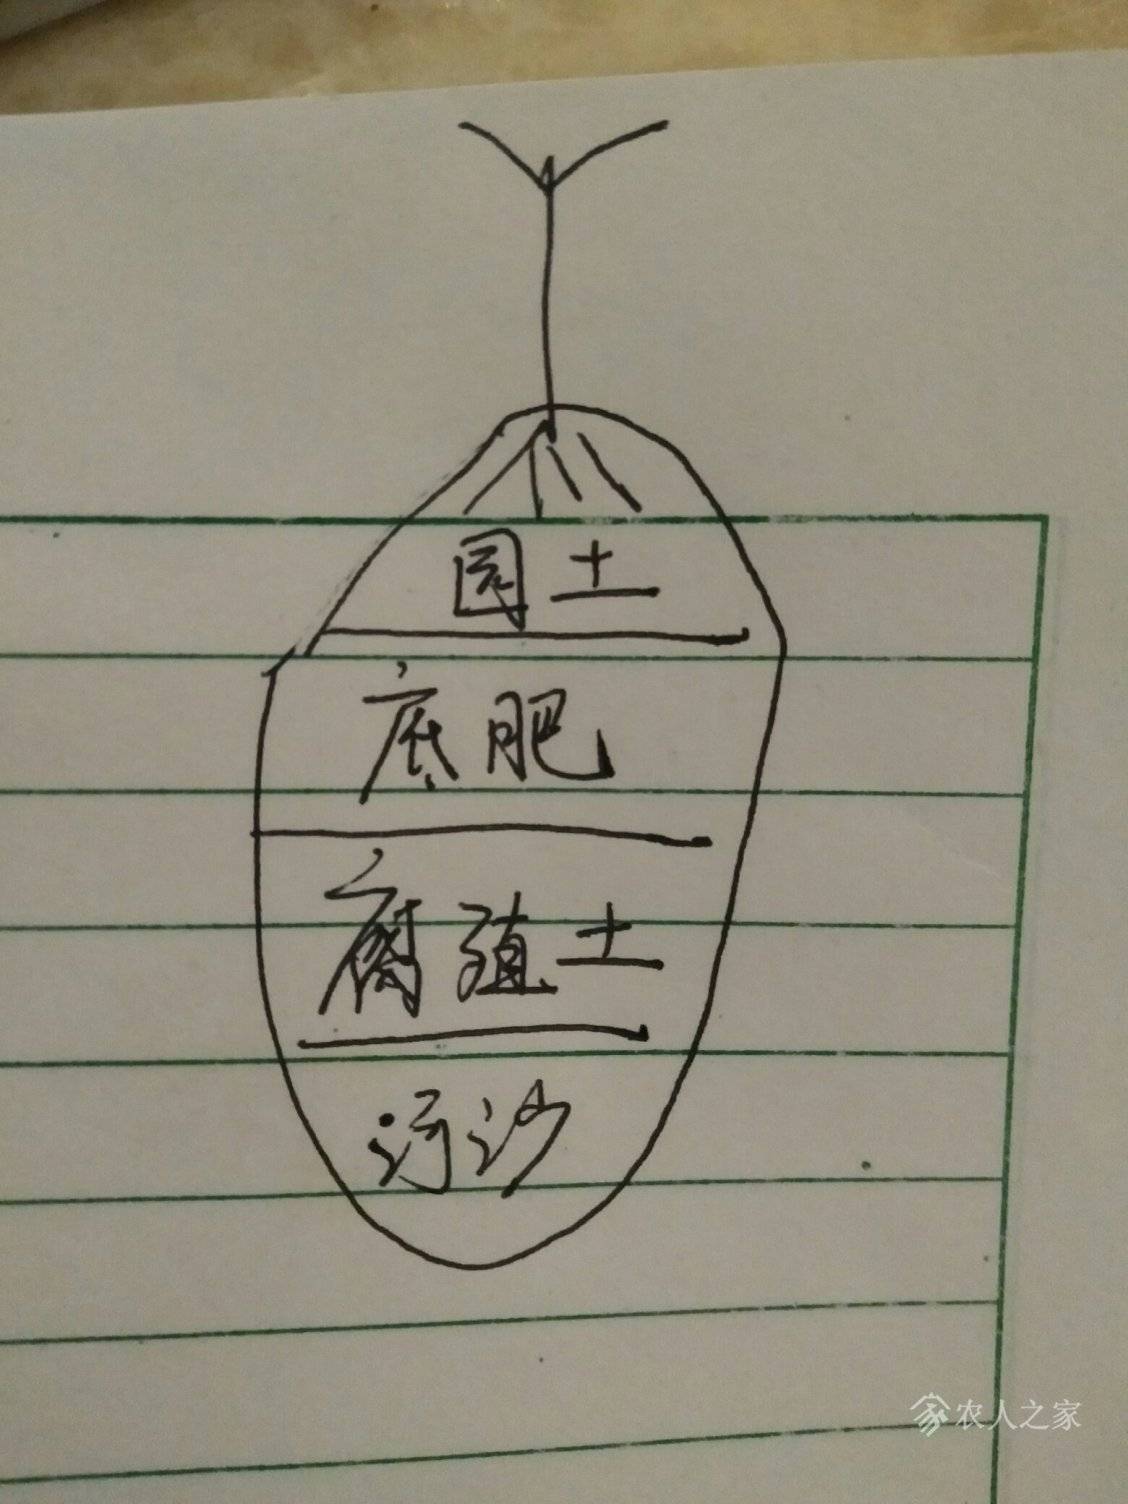 园土
底肥
腐殖土
河沙
农人之家